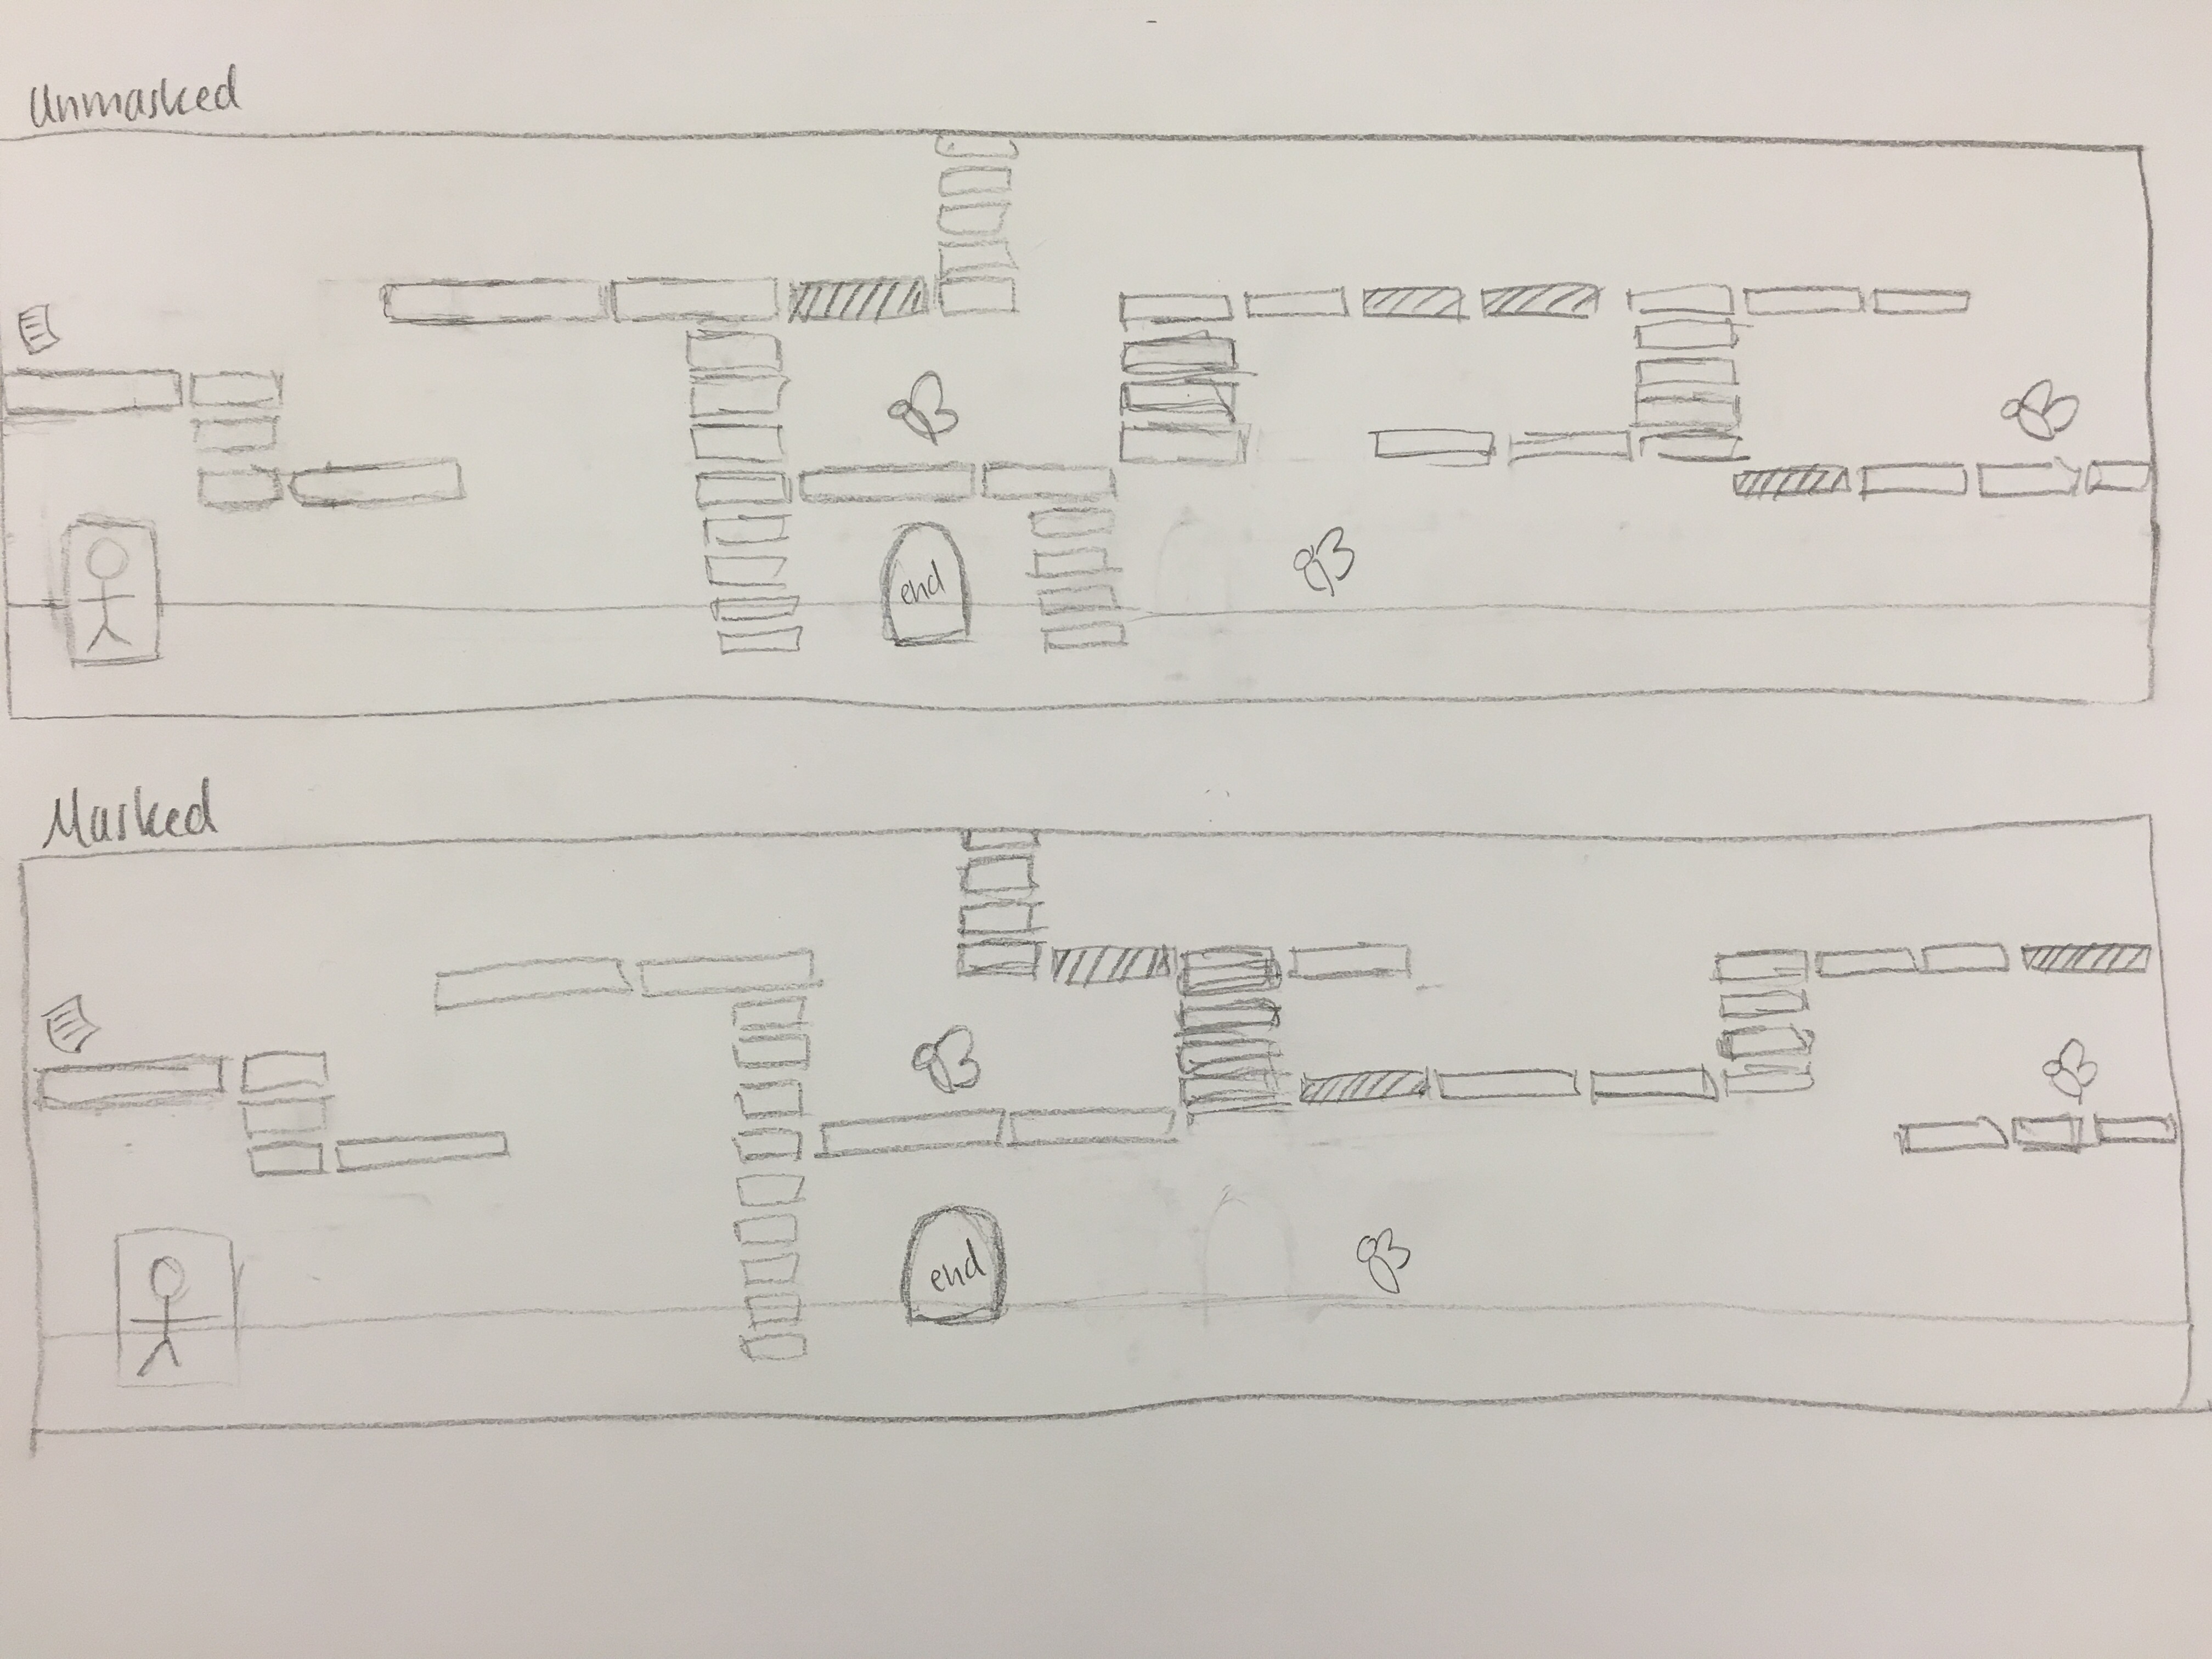 Unmasked
end
Masked
end